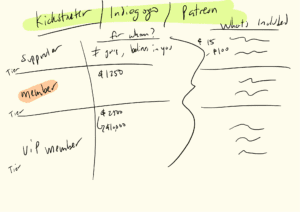 Kickstarter / Indiegogo / Patreon
for whom?
What's included
Supporter
Tier
# grs, believe in you
$15
$100
$1250
member
Tier
$2500
$10,000
VIP member
Tier